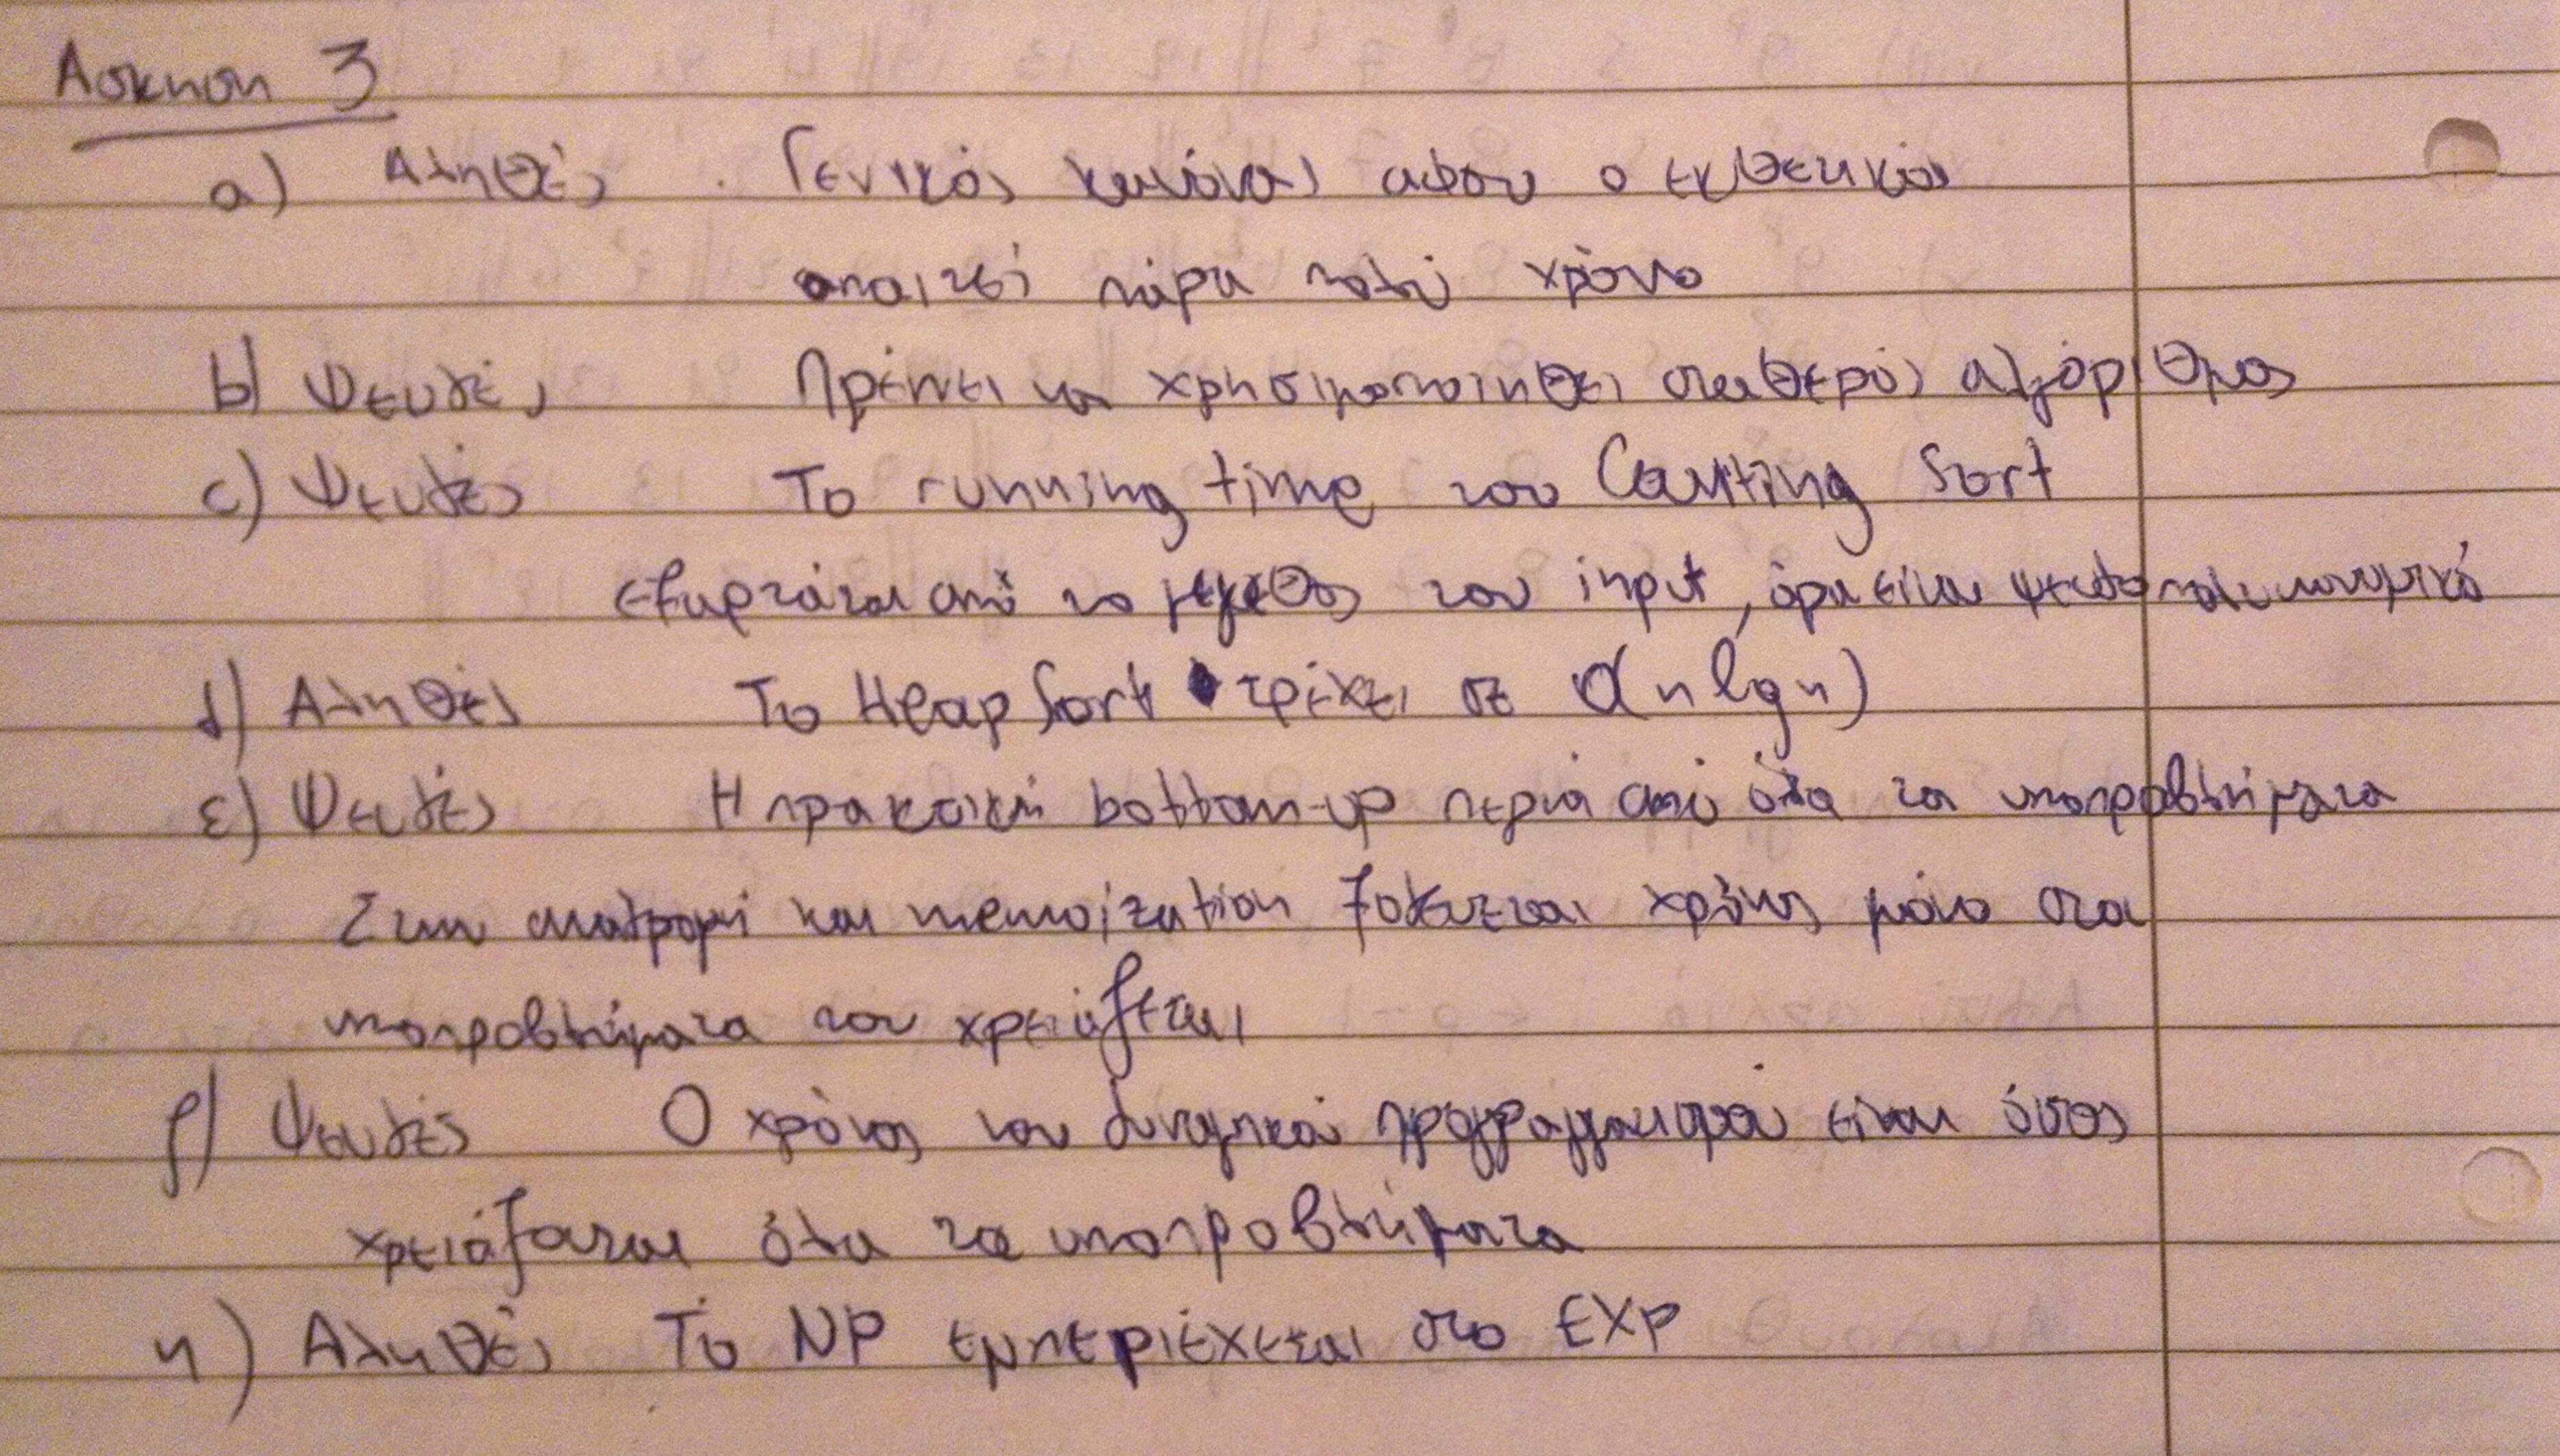 Άσκηση 3
a) Αληθές Γενικός κανόνας αφου ο εκθετικός
απαιτεί πάρα πολύ χρόνο
b) Ψευδές Πρέπει να χρησιμοποιηθεί σταθερός αλγόριθμος
c) Ψευδές Το running time του Counting Sort
εξαρτάται από το μέγεθος του input, άρα είναι ψευδοπολυωνυμικό
d) Αληθές Το HeapSort τρέχει σε O(n lg n)
ε) Ψευδές Η πρακτική bottom-up περνά από όλα τα υποπροβλήματα
Στην αναδρομή και memoization ξοδεύεται χρόνος μόνο στα
υποπροβλήματα που χρειάζεται
f) Ψευδές Ο χρόνος του δυναμικού προγραμματισμού είναι όσος
χρειάζεται όλα τα υποπροβλήματα
η) Αληθές Το NP εμπεριέχεται στο EXP